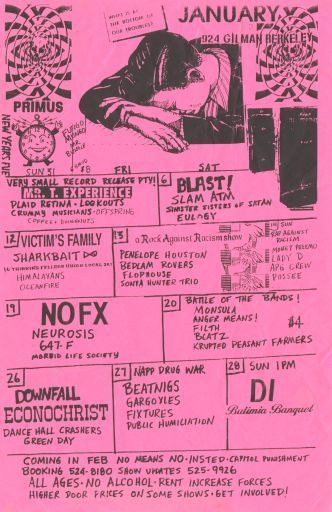 WHAT IS AT
THE BOTTOM OF
OUR TROUBLES?
JANUARY
924 GILMAN BERKELEY
PRIMUS
NEW YEARS EVE
SUN 31
$8
FRI
SAT
VERY SMALL RECORD RELEASE PTY!
MR. T. EXPERIENCE
PLAID RETINA · LOOKOUTS
CRUMMY MUSICIANS · OFFSPRING
COFFEE & DOUGHNUTS
6
BLAST!
SLAM ATM
SINISTER SISTERS OF SATAN
EULOGY
12
VICTIM'S FAMILY
SHARKBAIT
16 THINKING FELLERS UNION LOCAL 282
HIMALAYANS
OCEANFIRE
13
a Rock Against Racism show
PENELOPE HOUSTON
BEDLAM ROVERS
FLOPHOUSE
SONYA HUNTER TRIO
14 SUN
RAP AGAINST
RACISM
MONEY PENEMO
LADY D
APG CREW
POSSEE
19
NOFX
NEUROSIS
647·F
MORBID LIFE SOCIETY
20
BATTLE OF THE BANDS!
MONSULA
ANGER MEANS!
FILTH
BLATZ
KRUPTED PEASANT FARMERS
$4
26
DOWNFALL
ECONOCHRIST
DANCE HALL CRASHERS
GREEN DAY
27
NAPP DRUG WAR
BEATNIGS
GARGOYLES
FIXTURES
PUBLIC HUMILIATION
28
SUN 1PM
DI
Bulimia Banquet
COMING IN FEB NO MEANS NO · INSTED · CAPITOL PUNISHMENT
BOOKING 524-8180 SHOW UPDATES 525-9926
ALL AGES · NO ALCOHOL · RENT INCREASE FORCES
HIGHER DOOR PRICES ON SOME SHOWS · GET INVOLVED!